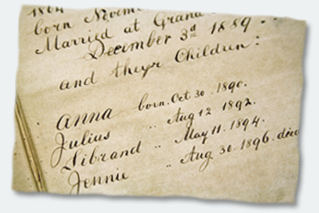 born Novem
Married at Grand
December 3rd 1889.
and theyr Children:
Anna born. Oct. 30. 1890.
Julius " Aug 12 1892.
Sibrand " May 11. 1894.
Jennie " Aug 30. 1896.